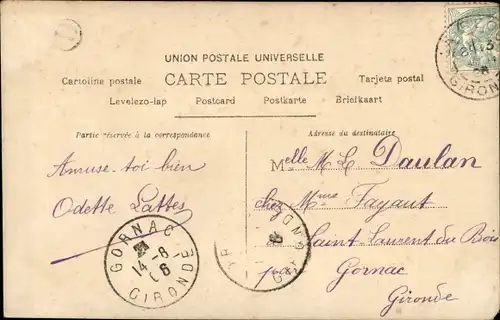 UNION POSTALE UNIVERSELLE
Cartolina postale CARTE POSTALE Tarjeta postal
Levelezo-lap Postcard Postkarte Briefkaart
Partie réservée à la correspondance
Adresse du destinataire
Amuse-toi bien
Odette Lattes
Melle M. L. Daulan
chez Mme Fayaut
à Saint-Laurent du Bois
par Gornac
Gironde
GORNAC
14 -8
06
GIRONDE
GIRONDE